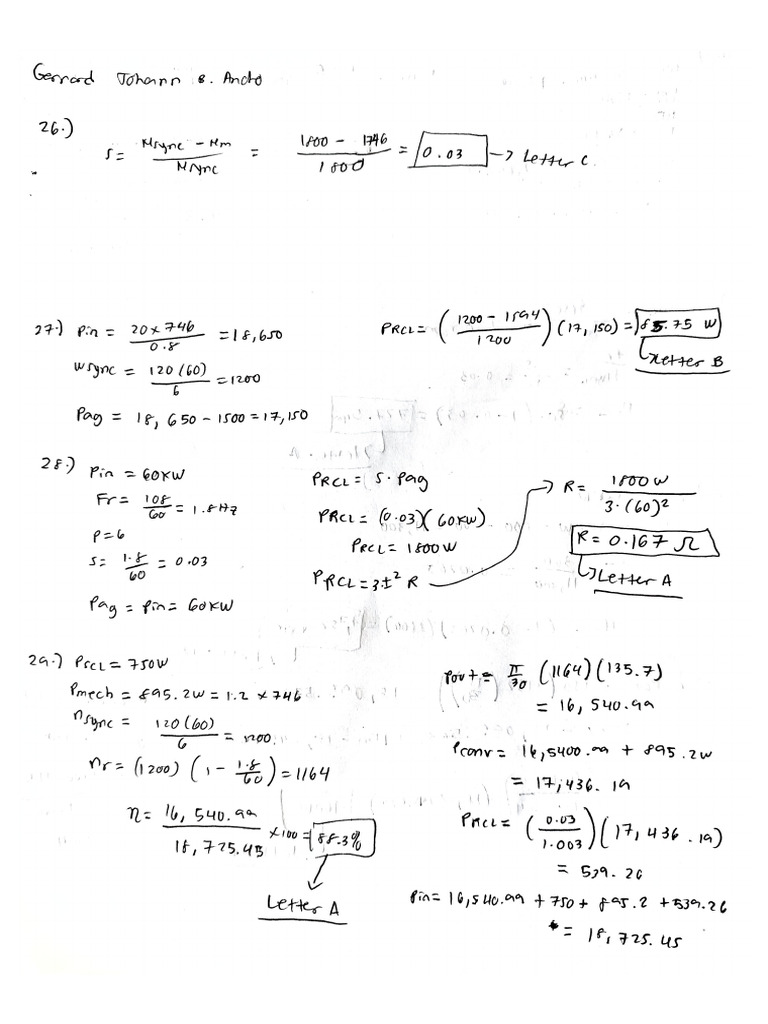 Gerrard Johann B. Ancto
26.) s = (Nsync - Nm) / Nsync = (1800 - 1746) / 1800 = 0.03 → Letter C
27.) Pin = (20 x 746) / 0.8 = 18,650
Wsync = 120(60) / 6 = 1200
Pag = 18,650 - 1500 = 17,150
PRCL = ((1200 - 1594) / 1200)(17,150) = 85.75 W
Letter B
28.) Pin = 60KW
Fr = 108 / 60 = 1.8 Hz
P = 6
s = 1.8 / 60 = 0.03
Pag = Pin = 60KW
PRCL = s · Pag
PRCL = (0.03)(60KW)
PRCL = 1800 W
PRCL = 3I² R
R = 1800 W / 3·(60)²
R = 0.167 Ω
Letter A
29.) PSCL = 750W
Pmech = 895.2W = 1.2 x 746
nsync = 120(60) / 6 = 1200
nr = (1200)(1 - 1.8/60) = 1164
n = 16,540.99 / 18,725.45 x 100 = 88.3%
Letter A
Pout = π/30 (1164)(135.7)
= 16,540.99
Pconv = 16,5400.99 + 895.2W
= 17,436.19
PRCL = (0.03 / 1.003)(17,436.19)
= 539.26
Pin = 16,540.99 + 750 + 895.2 + 539.26
= 18,725.45